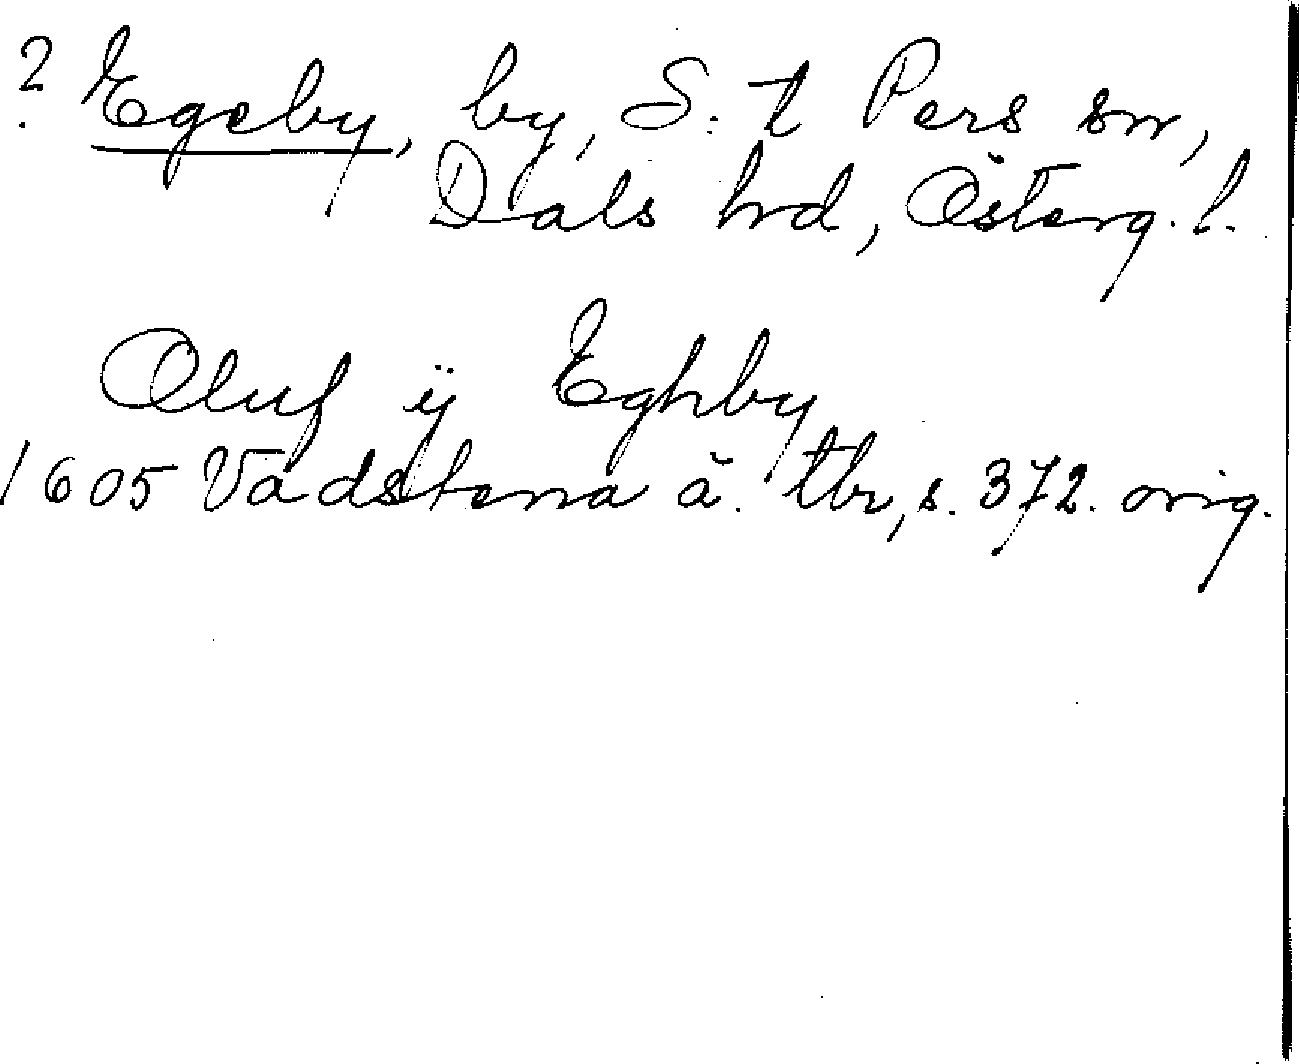 ? Egeby, by, S:t Pers sn,
Dals hd, Österg.l.
Oluf ÿ Eghby
1605 Vadstena ä. tbr, s. 372. orig.